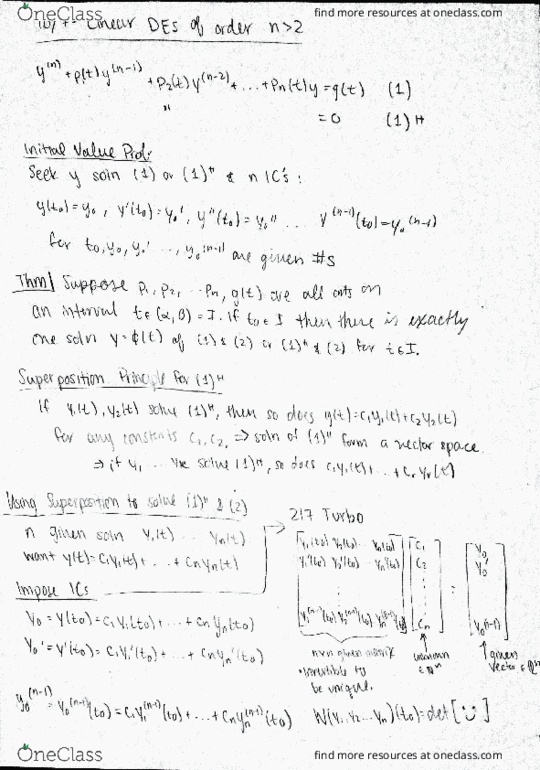 OneClass
find more resources at oneclass.com
Linear DEs of order n>2
y⁽ⁿ⁾ + p₁(t) y⁽ⁿ⁻¹⁾ + p₂(t) y⁽ⁿ⁻²⁾ + ... + pₙ(t) y = g(t) (1)
" = 0 (1)ᴴ
Initial Value Prob:
Seek y soln (1) or (1)ᴴ & n IC's :
y(t₀) = y₀ , y'(t₀) = y₀' , y''(t₀) = y₀'' ... y⁽ⁿ⁻¹⁾(t₀) = y₀⁽ⁿ⁻¹⁾
for t₀, y₀, y₀' ..., y₀⁽ⁿ⁻¹⁾ are given #s
Thm| Suppose p₁, p₂, ... pₙ, g(t) are all cnts on
an interval t∈(α, β) = I. if t₀ ∈ I then there is exactly
one soln y = ϕ(t) of (1) & (2) or (1)ᴴ & (2) for t∈I.
Superposition Principle for (1)ᴴ
if y₁(t), y₂(t) solve (1)ᴴ, then so does y(t) = c₁y₁(t) + c₂y₂(t)
for any constants c₁, c₂, ⇒ soln of (1)ᴴ form a vector space.
⇒ if y₁ ... solve (1)ᴴ, so does c₁y₁(t) + ... + cᵣyᵣ(t)
Using Superposition to solve (1)ᴴ & (2)
n given soln y₁(t) ... yₙ(t)
want y(t) = c₁y₁(t) + ... + cₙyₙ(t)
Impose ICs
y₀ = y(t₀) = c₁y₁(t₀) + ... + cₙyₙ(t₀)
y₀' = y'(t₀) = c₁y₁'(t₀) + ... + cₙyₙ'(t₀)
y₀⁽ⁿ⁻¹⁾ = y₀⁽ⁿ⁻¹⁾(t₀) = c₁y₁⁽ⁿ⁻¹⁾(t₀) + ... + cₙyₙ⁽ⁿ⁻¹⁾(t₀)
→ 217 Turbo
[y₁(t₀) y₂(t₀) ... yₙ(t₀)] [c₁] [y₀]
[y₁'(t₀) y₂'(t₀) ... yₙ'(t₀)] [c₂] = [y₀']
[y₁⁽ⁿ⁻¹⁾(t₀) y₂⁽ⁿ⁻¹⁾(t₀) yₙ⁽ⁿ⁻¹⁾(t₀)] [cₙ] [y₀⁽ⁿ⁻¹⁾]
n×n given matrix
• invertible to
be unique.
unknown
∈ ℝⁿ
given
vector ∈ ℝⁿ
W(y₁, y₂ ... yₙ)(t₀) = det[ ]
OneClass
find more resources at oneclass.com